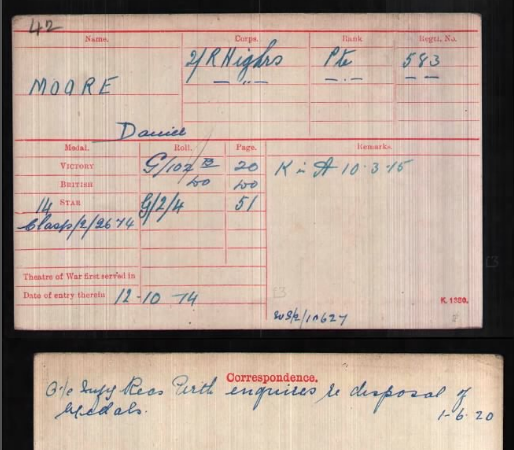 42
Name. Corps. Rank Regtl. No.
MOORE 2/R Highrs Pte 583
Daniel
Medal. Roll. Page. Remarks.
VICTORY G/102 B 20 K in A 10-3-15
BRITISH do do
14 STAR G/2/4 51
Clasp/2/2674
Theatre of War first served in
Date of entry therein 12-10-14
K. 1380.
Correspondence.
O i/c Infy Recs Perth enquires re disposal of
Medals. 1-6-20